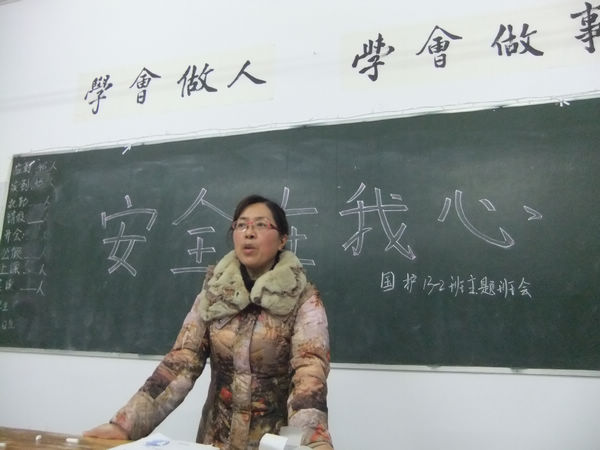 學會做人
學會做事
安全在我心
国护13-2班主题班会